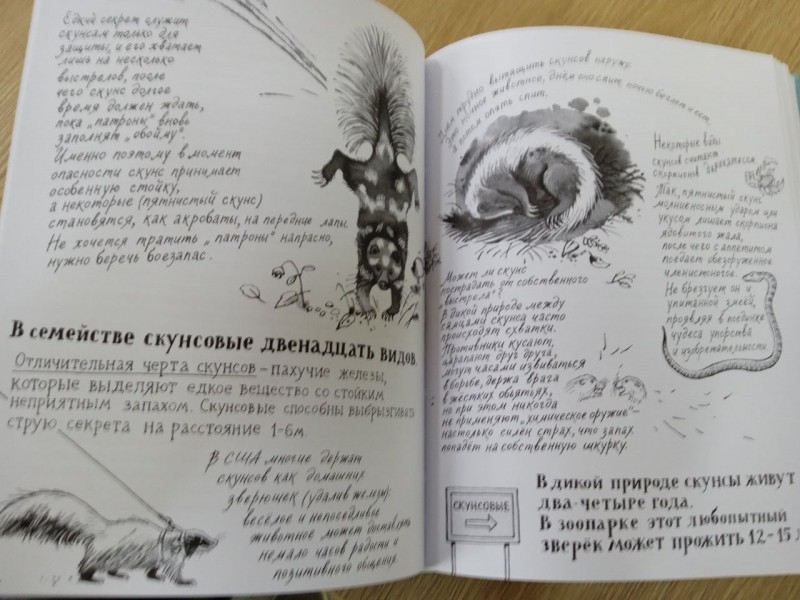 Едкий секрет служит
скунсам только для
защиты, и его хватает
лишь на несколько
выстрелов, после
чего скунс долгое
время должен ждать,
пока „патроны" вновь
заполнят „обойму".
Именно поэтому в момент
опасности скунс принимает
особенную стойку,
а некоторые (пятнистый скунс)
становятся, как акробаты, на передние лапы.
Не хочется тратить „патроны" напрасно,
нужно беречь боезапас.
В семействе скунсовые двенадцать видов.
Отличительная черта скунсов – пахучие железы,
которые выделяют едкое вещество со стойким
неприятным запахом. Скунсовые способны выбрызгивать
струю секрета на расстояние 1-6м.
В США многие держат
скунсов как домашних
зверюшек (удалив железу):
весёлое и непоседливое
животное может доставлять
немало часов радости и
позитивного общения.
трудно вытащить скунсов наружу.
Это ночное животное, днём оно спит, ночью бегает и ест,
а потом опять спит.
Некоторые виды
скунсов считают
скорпионов
Так, пятнистый скунс
молниеносным ударом или
укусом лишает скорпиона
ядовитого жала,
после чего с аппетитом
поедает обезоруженное
членистоногое.
Не брезгует он и
упитанной змеёй,
проявляя в поединке
чудеса упорства
и изобретательности.
Может ли скунс
пострадать от собственного
„выстрела"?
В дикой природе между
самцами скунса часто
происходят схватки.
Противники кусают,
царапают друг друга,
могут часами извиваться
в борьбе, держа врага
в жестких объятьях,
но при этом никогда
не применяют „химическое оружие" –
настолько силён страх, что запах
попадёт на собственную шкурку.
СКУНСОВЫЕ
В дикой природе скунсы живут
два-четыре года.
В зоопарке этот любопытный
зверёк может прожить 12-15 л